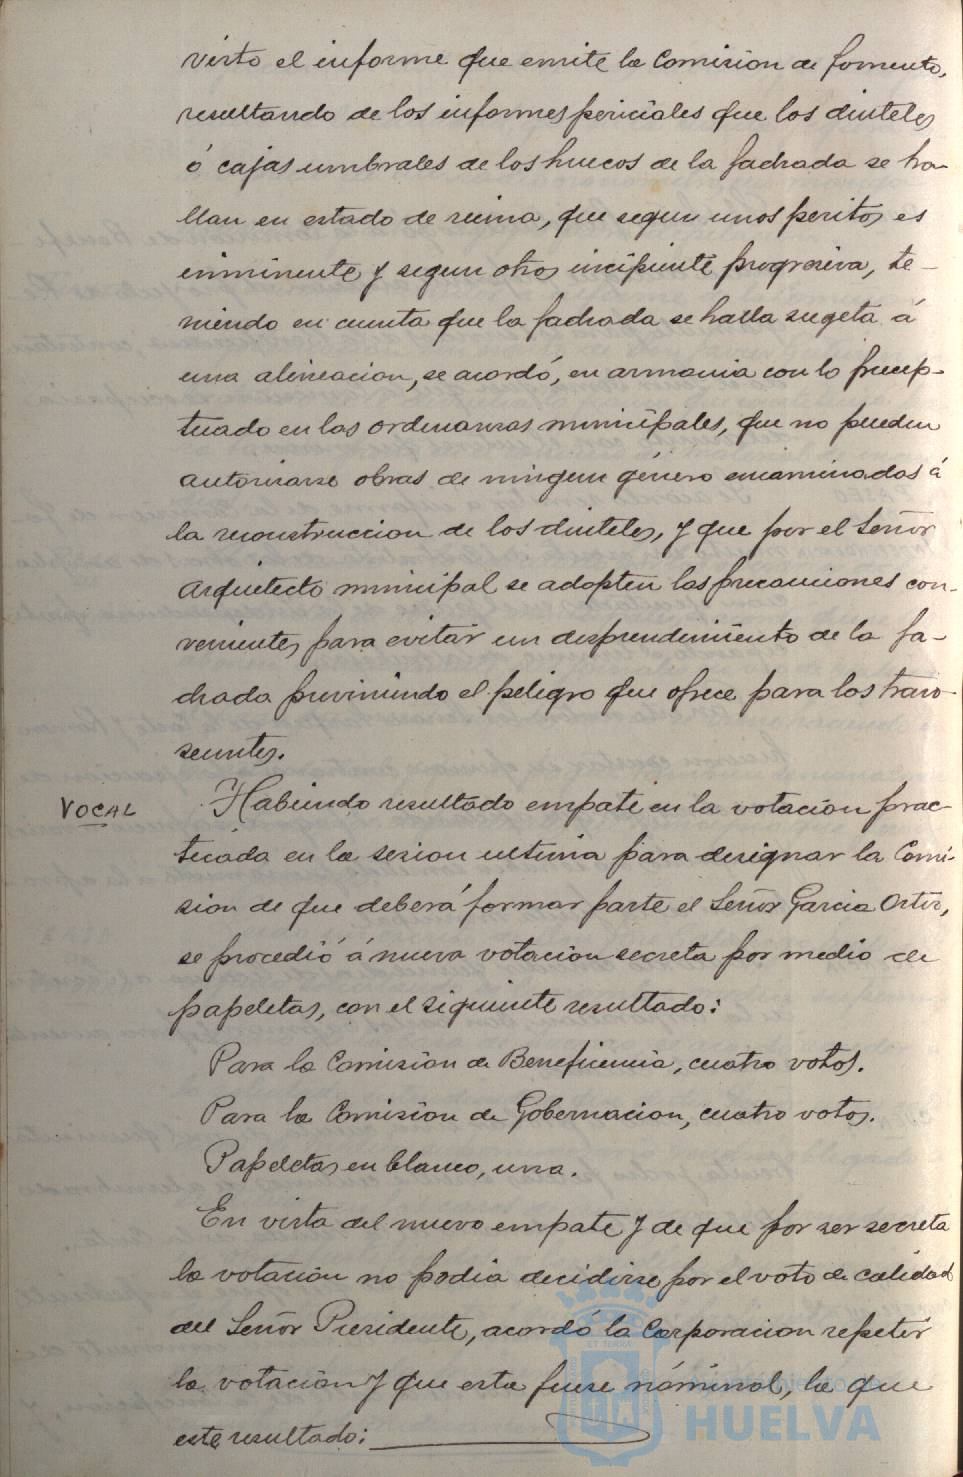 visto el informe que emite la Comision de fomento,
resultando de los informes periciales que los dinteles
ó cajas umbrales de los huecos de la fachada se ha-
llan en estado de ruina, que segun unos peritos es
inminente y segun otros incipiente progresiva, te-
niendo en cuenta que la fachada se halla sugeta á
una alineacion, se acordó, en armonia con lo precep-
tuado en las ordenanzas municipales, que no pueden
autorizarse obras de ningun género encaminadas á
la reconstruccion de los dinteles, y que por el Señor
Arquitecto municipal se adopten las precauciones con-
venientes para evitar un desprendimiento de la fa-
chada previniendo el peligro que ofrece para los tran-
seuntes.
VOCAL
Habiendo resultado empate en la votacion prac-
ticada en la sesion ultima para designar la Comi-
sion de que deberá formar parte el Señor Garcia Ortiz,
se procedió á nueva votacion secreta por medio de
papeletas, con el siguiente resultado:
Para la Comision de Beneficencia, cuatro votos.
Para la Comision de Gobernacion, cuatro votos.
Papeletas en blanco, una.
En vista del nuevo empate y de que por ser secreta
la votacion no podia decidirse por el voto de calidad
del Señor Presidente, acordó la Corporacion repetir
la votacion y que esta fuese nóminal, la que
este resultado:
HUELVA